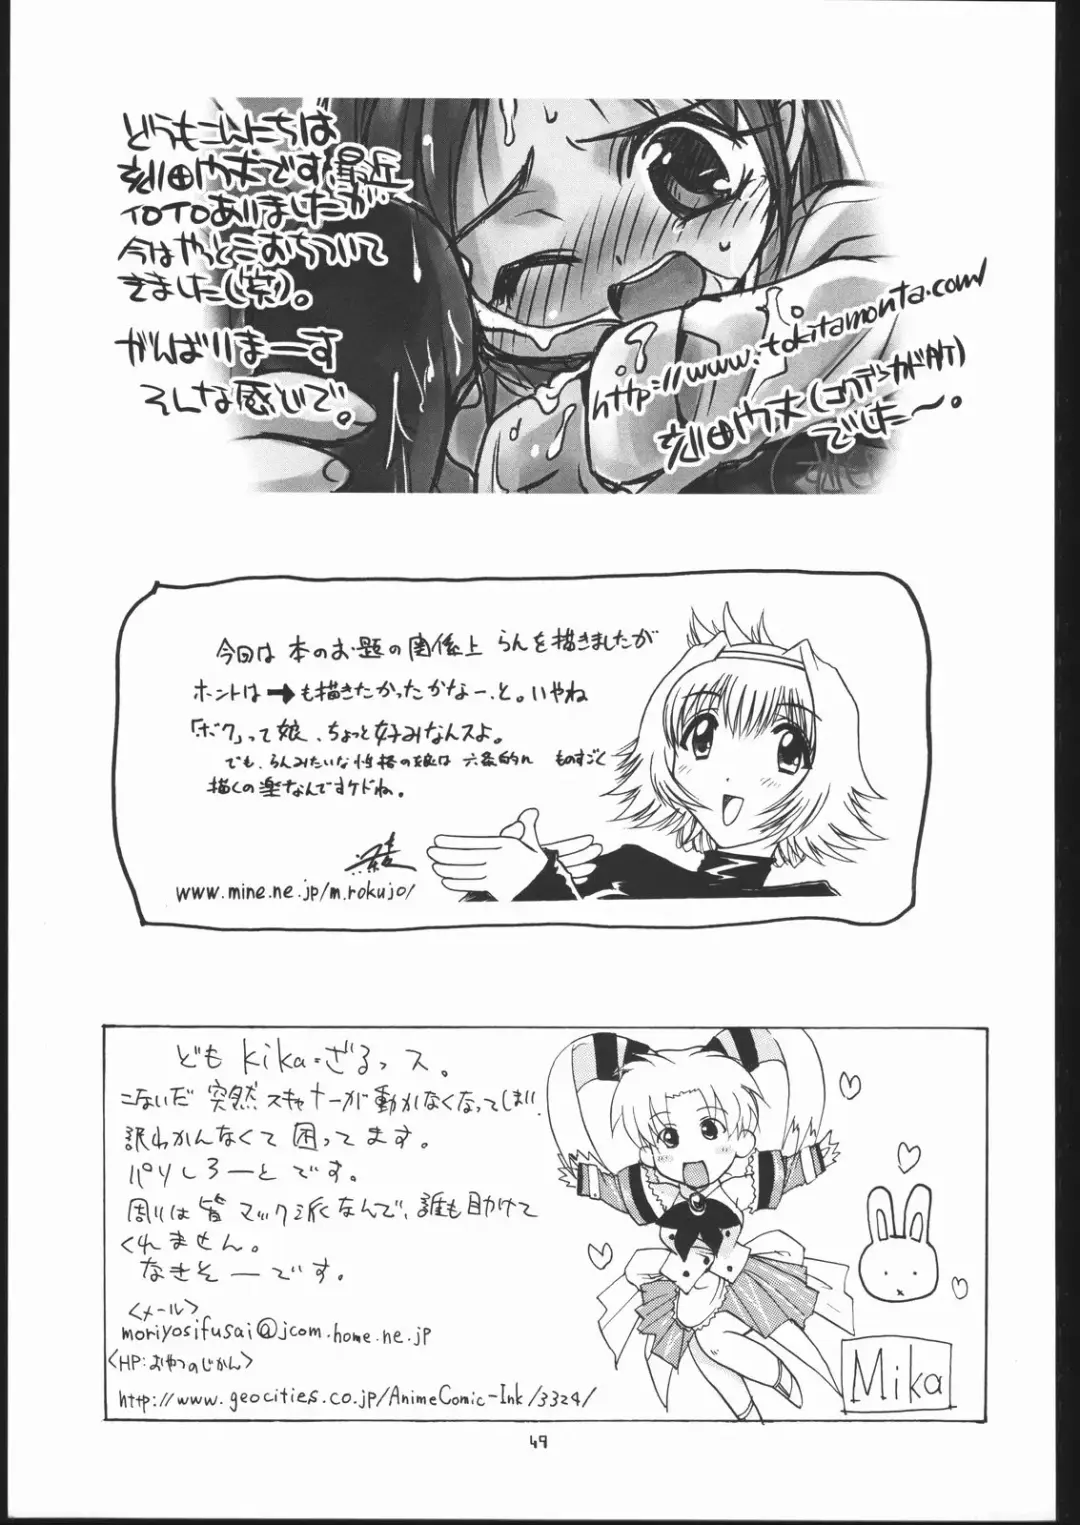 どうもこんにちは
刻田門大です最近
イロイロありましたが
今はやっとこおちついて
きました(笑)。
がんばりまーす
そんな感じで。
http://www.tokitamonta.com/
刻田門大(コウデンカドガケ)
でした〜。
今回は 本のお題の関係上 らんを描きましたが
ホントは➡も描きたかったかなー、と。いやね
「ボク」って娘、ちょっと好みなんスよ。
でも、らんみたいな性格の娘は 六条的に ものすごく
描くの楽なんですケドね。
綾
www.mine.ne.jp/m.rokujo/
ども kika=ざるっス。
こないだ 突然 スキャナーが動かなくなってしまい、
訳わかんなくて 困ってます。
バリしろーとです。
周りは皆マック派なんで、誰も助けて
くれません。
なきそーです。
<メール>
moriyosifusai@jcom.home.ne.jp
<HP:おやつのじかん>
http://www.geocities.co.jp/AnimeComic-Ink/3324/
Mika
49